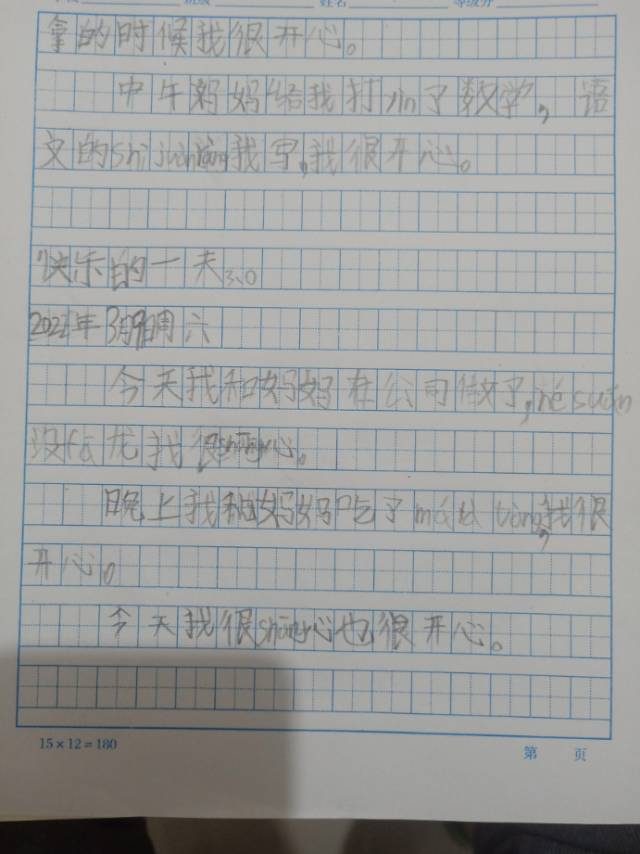 拿的时候我很开心。
中午妈妈给我打yin了数学,语
文的shì juàn ràng我写,我很开心。
快乐的一天3.0
年3月 周六
今天我和妈妈在公司做了,né suān
没fā 我很shāng心。
晚上我和妈妈吃了má là tàng,我很
开心。
今天我很shāng心也很开心。
15×12=180
第 页